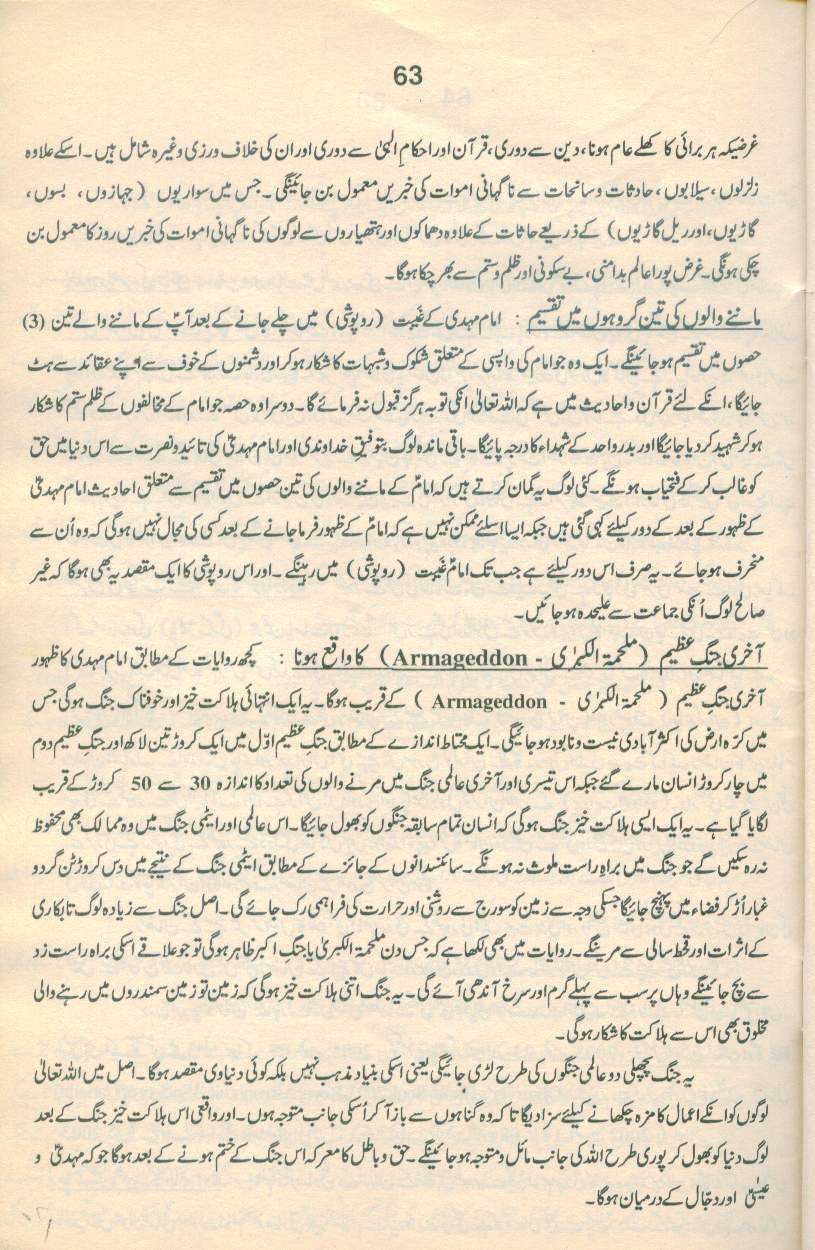 63
غرضیکہ ہر برائی کا کھلے عام ہونا، دین سے دوری، قرآن اور احکامِ الٰہی سے دوری اور ان کی خلاف ورزی وغیرہ شامل ہیں۔ اسکے علاوہ
زلزلوں، سیلابوں، حادثات وسانحات سے ناگہانی اموات کی خبریں معمول بن جائینگی۔ جس میں سواریوں (جہازوں، بسوں،
گاڑیوں، اور ریل گاڑیوں) کے ذریعے حاثات کے علاوہ دھماکوں اور ہتھیاروں سے لوگوں کی ناگہانی اموات کی خبریں روز کا معمول بن
چکی ہونگی۔ غرض پورا عالم بدامنی، بے سکونی اور ظلم وستم سے بھر چکا ہوگا۔
ماننے والوں کی تین گروہوں میں تقسیم : امام مہدی کے غیبت (روپوشی) میں چلے جانے کے بعد آپؑ کے ماننے والے تین (3)
حصوں میں تقسیم ہوجائینگے۔ ایک وہ جو امام کی واپسی کے متعلق شکوک وشبہات کا شکار ہوکر اور دشمنوں کے خوف سے اپنے عقائد سے ہٹ
جائیگا، انکے لئے قرآن واحادیث میں ہے کہ اللہ تعالیٰ انکی توبہ ہرگز قبول نہ فرمائے گا۔ دوسرا وہ حصہ جو امام کے مخالفوں کے ظلم ستم کا شکار
ہوکر شہید کردیا جائیگا اور بدر واحد کے شہداء کا درجہ پائیگا۔ باقی ماندہ لوگ بتوفیقِ خداوندی اور امام مہدیؑ کی تائید ونصرت سے اس دنیا میں حق
کو غالب کرکے فتحیاب ہونگے۔ کئی لوگ یہ گمان کرتے ہیں کہ امامؑ کے ماننے والوں کی تین حصوں میں تقسیم سے متعلق احادیث امام مہدیؑ
کے ظہور کے بعد کے دور کیلئے کہی گئی ہیں جبکہ ایسا اسلئے ممکن نہیں ہے کہ امامؑ کے ظہور فرماجانے کے بعد کسی کی مجال نہیں ہوگی کہ وہ اُن سے
منحرف ہوجائے۔ یہ صرف اس دور کیلئے ہے جب تک امامؑ غیبت (روپوشی) میں رہینگے۔ اور اس روپوشی کا ایک مقصد یہ بھی ہوگا کہ غیر
صالح لوگ اُنکی جماعت سے علیحدہ ہوجائیں۔
آخری جنگِ عظیم (ملحمۃ الکبرٰی - Armageddon) کا واقع ہونا : کچھ روایات کے مطابق امام مہدی کا ظہور
آخری جنگِ عظیم (ملحمۃ الکبرٰی - Armageddon) کے قریب ہوگا۔ یہ ایک انتہائی ہلاکت خیز اور خوفناک جنگ ہوگی جس
میں کرّہ ارض کی اکثر آبادی نیست ونابود ہوجائیگی۔ ایک محتاط اندازے کے مطابق جنگِ عظیم اوّل میں ایک کروڑ تین لاکھ اور جنگِ عظیم دوم
میں چار کروڑ انسان مارے گئے جبکہ اس تیسری اور آخری عالمی جنگ میں مرنے والوں کی تعداد کا اندازہ 30 سے 50 کروڑ کے قریب
لگایا گیا ہے۔ یہ ایک ایسی ہلاکت خیز جنگ ہوگی کہ انسان تمام سابقہ جنگوں کو بھول جائیگا۔ اس عالمی اور ایٹمی جنگ میں وہ ممالک بھی محفوظ
نہ رہ سکیں گے جو جنگ میں براہِ راست ملوث نہ ہونگے۔ سائنسدانوں کے جائزے کے مطابق ایٹمی جنگ کے نتیجے میں دس کروڑ ٹن گرد و
غبار اُڑ کر فضاء میں پہنچ جائیگا جسکی وجہ سے زمین کو سورج سے روشنی اور حرارت کی فراہمی رک جائے گی۔ اصل جنگ سے زیادہ لوگ تابکاری
کے اثرات اور قحط سالی سے مرینگے۔ روایات میں بھی لکھا ہے کہ جس دن ملحمۃ الکبریٰ یا جنگِ اکبر ظاہر ہوگی تو جو علاقے اسکی براہ راست زد
سے بچ جائینگے وہاں پر سب سے پہلے گرم اور سرخ آندھی آئے گی۔ یہ جنگ اتنی ہلاکت خیز ہوگی کہ زمین تو زمین سمندروں میں رہنے والی
مخلوق بھی اس سے ہلاکت کا شکار ہوگی۔
یہ جنگ پچھلی دو عالمی جنگوں کی طرح لڑی جائیگی یعنی اسکی بنیاد مذہب نہیں بلکہ کوئی دنیاوی مقصد ہوگا۔ اصل میں اللہ تعالیٰ
لوگوں کو انکے اعمال کا مزہ چکھانے کیلئے سزا دیگا تاکہ وہ گناہوں سے باز آکر اُسکی جانب متوجہ ہوں۔ اور واقعی اس ہلاکت خیز جنگ کے بعد
لوگ دنیا کو بھول کر پوری طرح اللہ کی جانب مائل ومتوجہ ہوجائینگے۔ حق وباطل کا معرکہ اس جنگ کے ختم ہونے کے بعد ہوگا جو کہ مہدیؑ و
عیسٰیؑ اور دجّال کے درمیان ہوگا۔